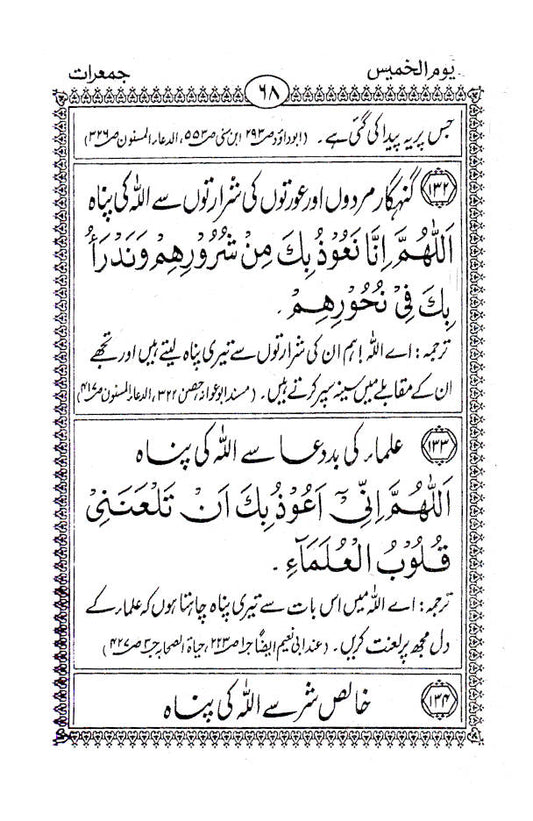 یوم الخمیس
جمعرات
۶۸
جس پر یہ پیدا کی گئی ہے ۔ (ابوداؤد ص ۲۹۳ ابن سنی ص ۵۵۳، الدعاء المسنون ص ۳۲۶)
۱۳۲ گنہگار مردوں اور عورتوں کی شرارتوں سے اللہ کی پناہ
اَللّٰهُمَّ اِنَّا نَعُوْذُ بِكَ مِنْ شُرُوْرِهِمْ وَنَدْرَأُ
بِكَ فِیْ نُحُوْرِهِمْ .
ترجمہ : اے اللہ ! ہم ان کی شرارتوں سے تیری پناہ لیتے ہیں اور تجھے
ان کے مقابلے میں سینہ سپر کرتے ہیں ۔ (مسند ابوعوانہ حصن ۳۲۲، الدعاء المسنون ص ۴۱۷)
۱۳۳ علماء کی بددعا سے اللہ کی پناہ
اَللّٰهُمَّ اِنِّیْٓ اَعُوْذُ بِكَ اَنْ تَلْعَنَنِیْ
قُلُوْبُ الْعُلَمَآءِ .
ترجمہ : اے اللہ میں اس بات سے تیری پناہ چاہتا ہوں کہ علماء کے
دل مجھ پر لعنت کریں ۔ (عند ابی نعیم ایضًا جـ۱ ص ۲۲۳، حیاۃ الصحابہ جـ۳ ص ۴۲۷)
۱۳۴ خالص شر سے اللہ کی پناہ